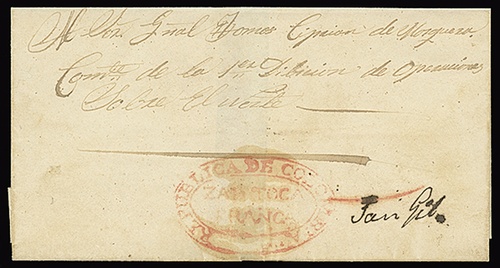 Al Sor. Gñal Tomas Cprian de Mosquera
Comte. de la 1ra Dibicion de Operaciones
Sobre El Norte
REPUBLICA DE COLOMBIA
ZAPATOCA
FRANCA
San Gil.